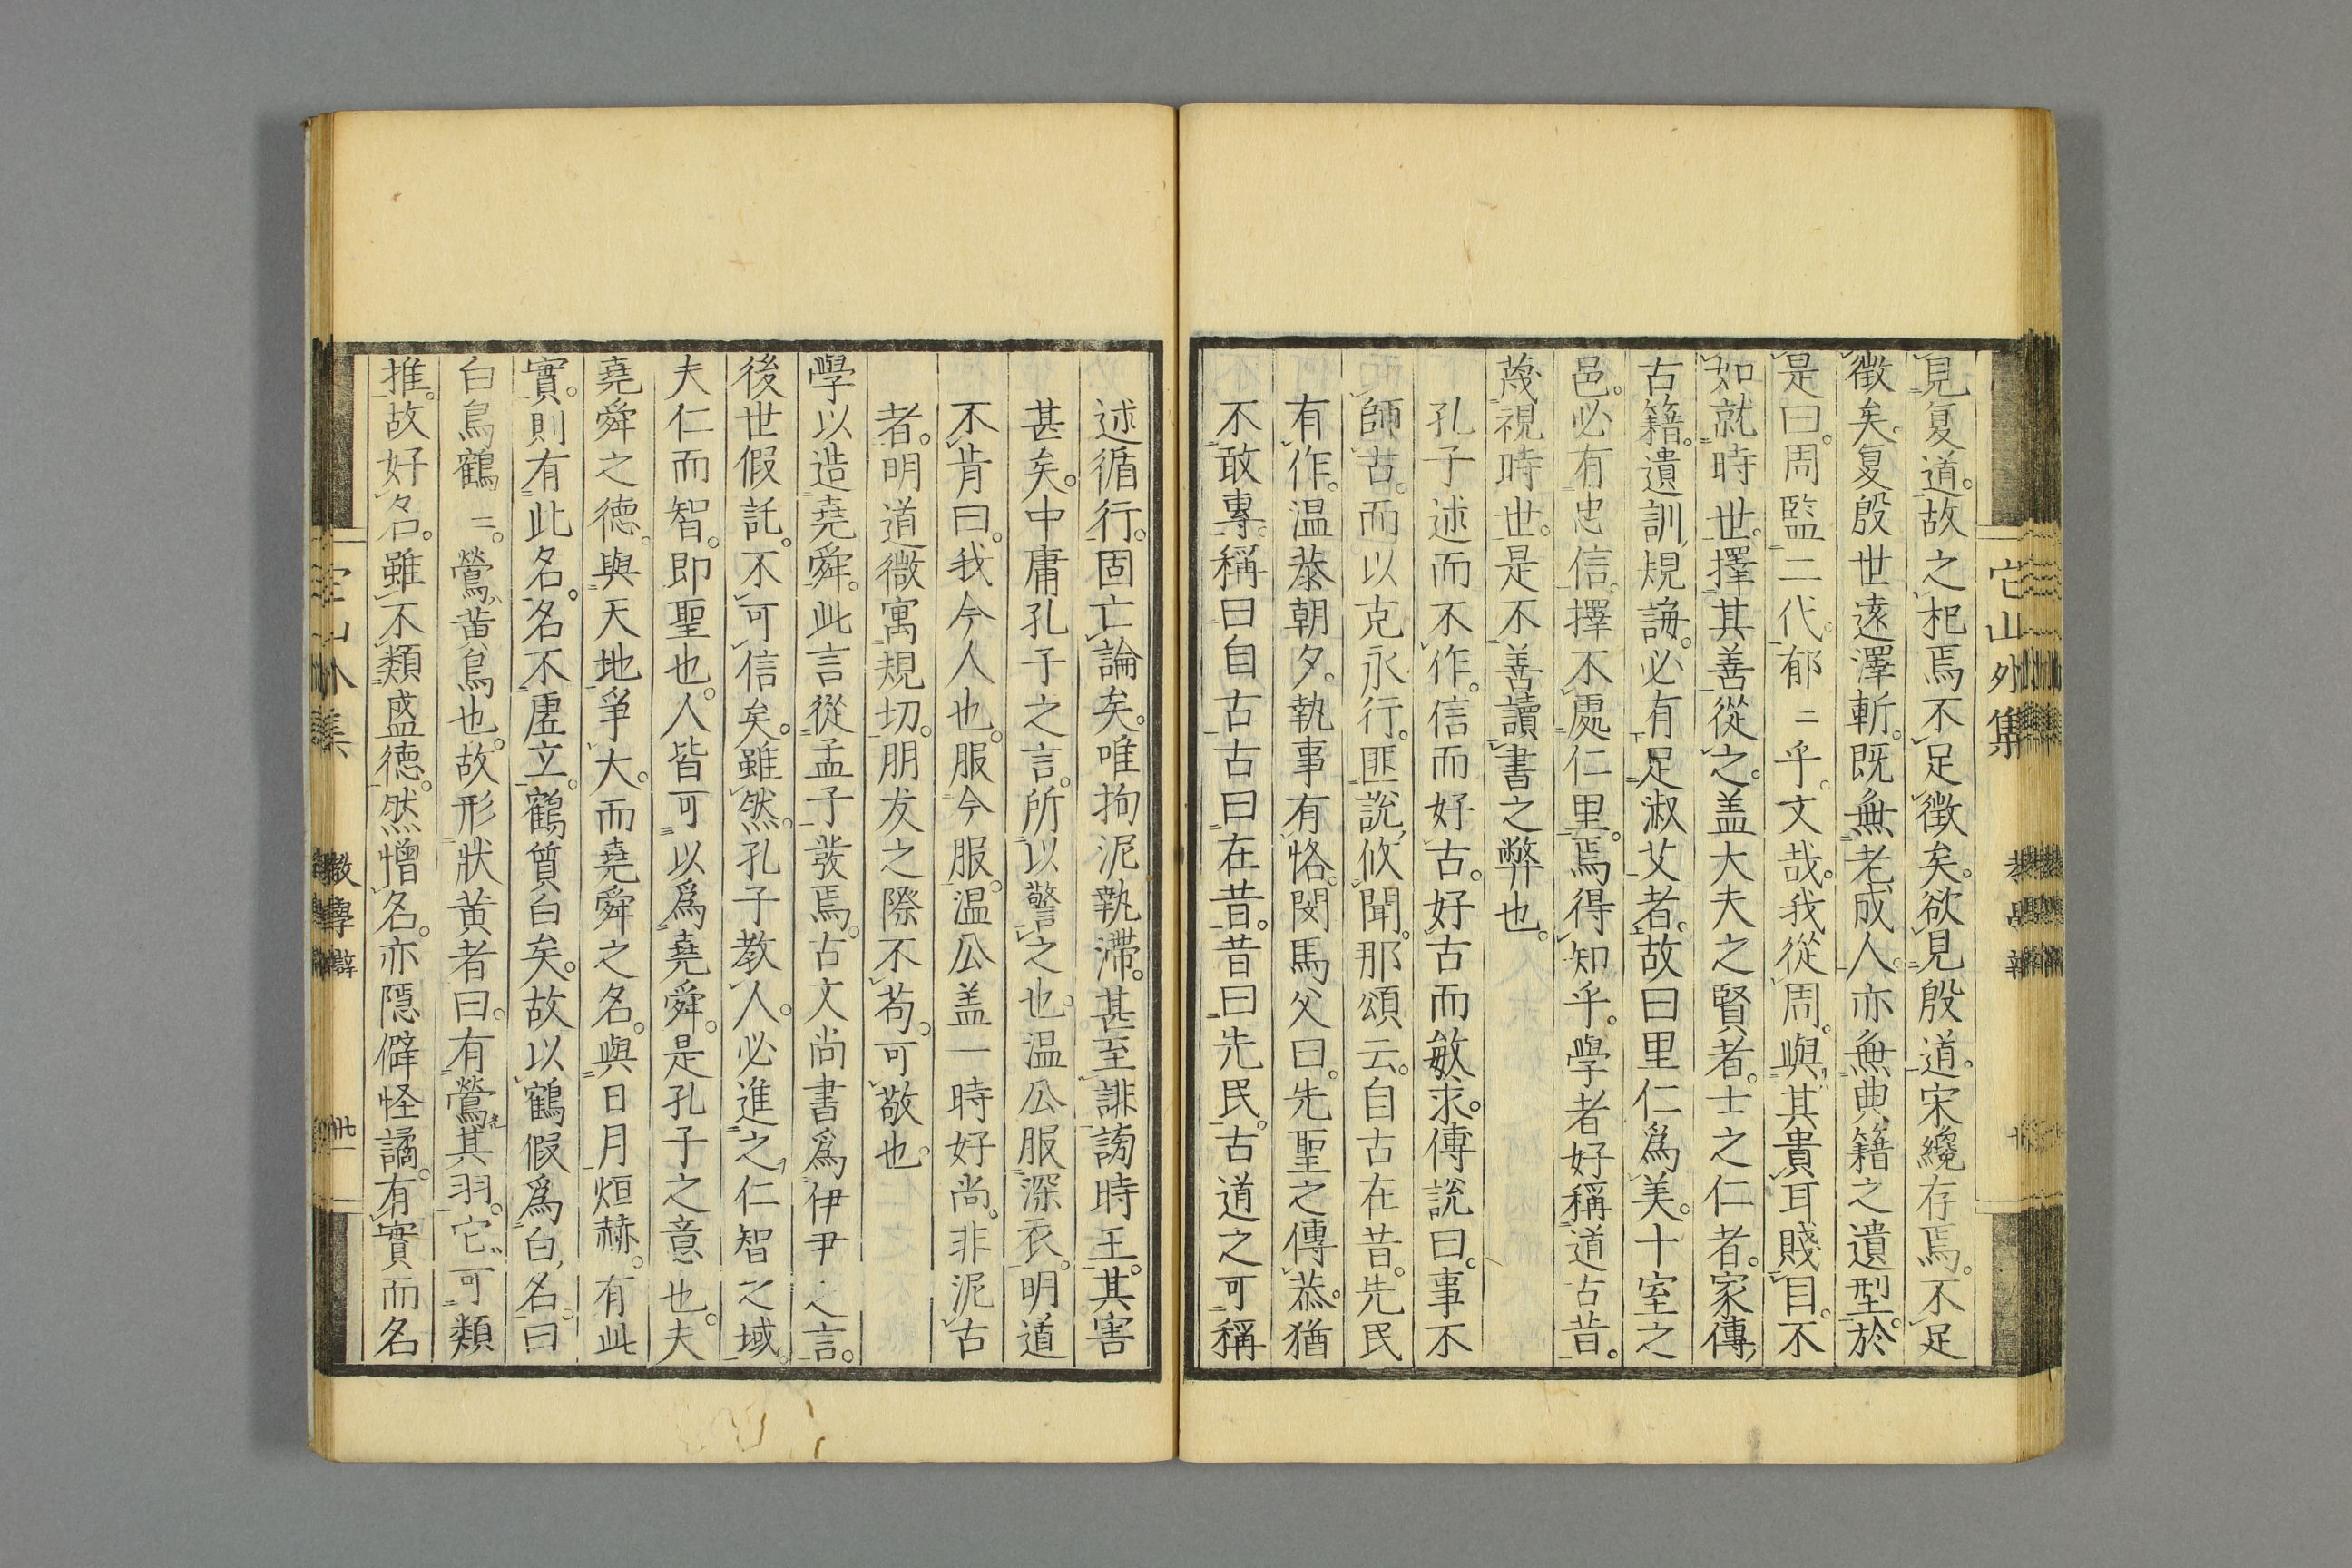 見夏道。故之杞焉不足徵矣。欲見殷道。宋纔存焉。不足
徵矣。夏殷世遠澤斬。既無老成人。亦無典籍之遺型。於
是曰。周監二代。郁〻乎。文哉。我從周。與其貴耳賤目。不
如就時世。擇其善從之。盖大夫之賢者。士之仁者。家傳
古籍。遺訓規誨。必有足淑艾者。故曰里仁爲美。十室之
邑。必有忠信。擇不處仁里。焉得知乎。學者好稱道古昔。
蔑視時世。是不善讀書之弊也。
孔子述而不作。信而好古。好古而敏求。傳說曰。事不
師古。而以克永行。匪說攸聞。那頌云。自古在昔。先民
有作。温恭朝夕。執事有恪。閔馬父曰。先聖之傳恭。猶
不敢專。稱曰自古古曰在昔。昔曰先民。古道之可稱
述循行。固亡論矣。唯拘泥執滯。甚至誹謗時王。其害
甚矣。中庸孔子之言。所以警之也。温公服深衣。明道
不肯曰。我今人也。服今服。温公盖一時好尚。非泥古
者。明道微寓規切。朋友之際不苟。可敬也。
學以造堯舜。此言從孟子發焉。古文尚書爲伊尹之言。
後世假託。不可信矣。雖然。孔子教人。必進之仁智之域。
夫仁而智。即聖也。人皆可以爲堯舜。是孔子之意也。夫
堯舜之德。與天地爭大。而堯舜之名。與日月烜赫。有此
實。則有此名。名不虛立。鶴質白矣。故以鶴假爲白名曰
白鳥鶴〻。鶯黃鳥也。故形狀黃者曰。有鶯其羽。它可類
推。故好名。雖不類盛德。然憎名。亦隱僻怪譎。有實而名
它山外集